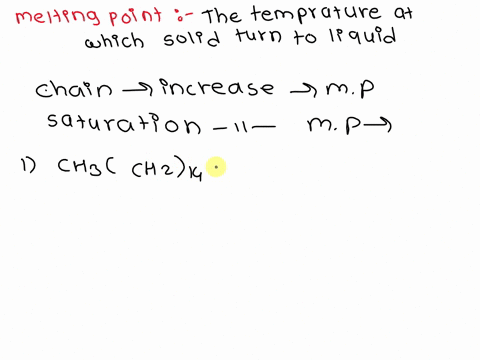 melting point :- The temprature at
which solid turn to liquid
chain → increase → m.p
saturation -11- m.p →
1) CH3( CH2)14